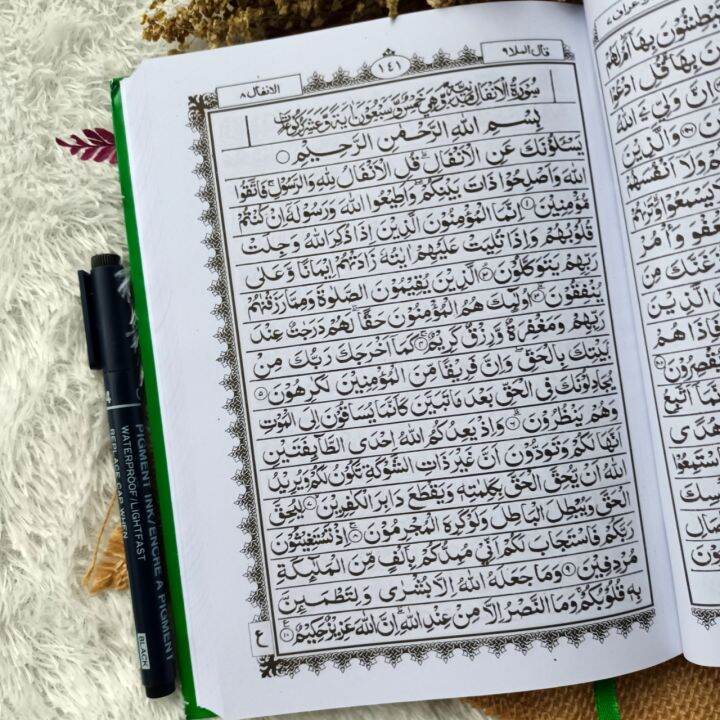 قال الملا ٩
١٤١
الانفال ٨
سُوْرَةُ الْاَنْفَالِ مَدَنِيَّةٌ وَّهِيَ خَمْسٌ وَّسَبْعُوْنَ اٰيَةً وَّعَشْرُ رُكُوْعَاتٍ
بِسْمِ اللّٰهِ الرَّحْمٰنِ الرَّحِيْمِ
يَسْـَٔلُوْنَكَ عَنِ الْاَنْفَالِ ۗ قُلِ الْاَنْفَالُ لِلّٰهِ وَالرَّسُوْلِ ۚ فَاتَّقُوا
اللّٰهَ وَاَصْلِحُوْا ذَاتَ بَيْنِكُمْ ۖ وَاَطِيْعُوا اللّٰهَ وَرَسُوْلَهٗٓ اِنْ كُنْتُمْ
مُّؤْمِنِيْنَ ١ اِنَّمَا الْمُؤْمِنُوْنَ الَّذِيْنَ اِذَا ذُكِرَ اللّٰهُ وَجِلَتْ
قُلُوْبُهُمْ وَاِذَا تُلِيَتْ عَلَيْهِمْ اٰيٰتُهٗ زَادَتْهُمْ اِيْمَانًا وَّعَلٰى
رَبِّهِمْ يَتَوَكَّلُوْنَ ٢ الَّذِيْنَ يُقِيْمُوْنَ الصَّلٰوةَ وَمِمَّا رَزَقْنٰهُمْ
يُنْفِقُوْنَ ٣ اُولٰٓئِكَ هُمُ الْمُؤْمِنُوْنَ حَقًّا ۗ لَهُمْ دَرَجٰتٌ عِنْدَ
رَبِّهِمْ وَمَغْفِرَةٌ وَّرِزْقٌ كَرِيْمٌ ٤ كَمَآ اَخْرَجَكَ رَبُّكَ مِنْۢ
بَيْتِكَ بِالْحَقِّ ۖ وَاِنَّ فَرِيْقًا مِّنَ الْمُؤْمِنِيْنَ لَكٰرِهُوْنَ ٥
يُجَادِلُوْنَكَ فِى الْحَقِّ بَعْدَ مَا تَبَيَّنَ كَاَنَّمَا يُسَاقُوْنَ اِلَى الْمَوْتِ
وَهُمْ يَنْظُرُوْنَ ٦ وَاِذْ يَعِدُكُمُ اللّٰهُ اِحْدَى الطَّآئِفَتَيْنِ
اَنَّهَا لَكُمْ وَتَوَدُّوْنَ اَنَّ غَيْرَ ذَاتِ الشَّوْكَةِ تَكُوْنُ لَكُمْ وَيُرِيْدُ
اللّٰهُ اَنْ يُّحِقَّ الْحَقَّ بِكَلِمٰتِهٖ وَيَقْطَعَ دَابِرَ الْكٰفِرِيْنَ ٧ لِيُحِقَّ
الْحَقَّ وَيُبْطِلَ الْبَاطِلَ وَلَوْ كَرِهَ الْمُجْرِمُوْنَ ٨ اِذْ تَسْتَغِيْثُوْنَ
رَبَّكُمْ فَاسْتَجَابَ لَكُمْ اَنِّيْ مُمِدُّكُمْ بِاَلْفٍ مِّنَ الْمَلٰٓئِكَةِ
مُرْدِفِيْنَ ٩ وَمَا جَعَلَهُ اللّٰهُ اِلَّا بُشْرٰى وَلِتَطْمَئِنَّ
بِهٖ قُلُوْبُكُمْ ۚ وَمَا النَّصْرُ اِلَّا مِنْ عِنْدِ اللّٰهِ ۗ اِنَّ اللّٰهَ عَزِيْزٌ حَكِيْمٌ ١٠
ع
بِهَآ اَمْ لَهُمْ
بِهَا ۗ قُلِ ادْعُوْا
اِنَّ وَلِيَِّۧ اللّٰهُ
وَالَّذِيْنَ
وَلَآ اَنْفُسَهُمْ
لَا يَسْمَعُوْا ۗ وَتَرٰىهُمْ
الْعَفْوَ وَأْمُرْ
يَنْزَغَنَّكَ مِنَ
الَّذِيْنَ
فَاِذَا هُمْ
يُقْصِرُوْنَ
اِنَّمَآ اَتَّبِعُ
وَهُدًى
PIGMENT INK/ENCRE A PIGMENT
WATERPROOF/LIGHTFAST
REPLACE CAP WHEN
BLACK